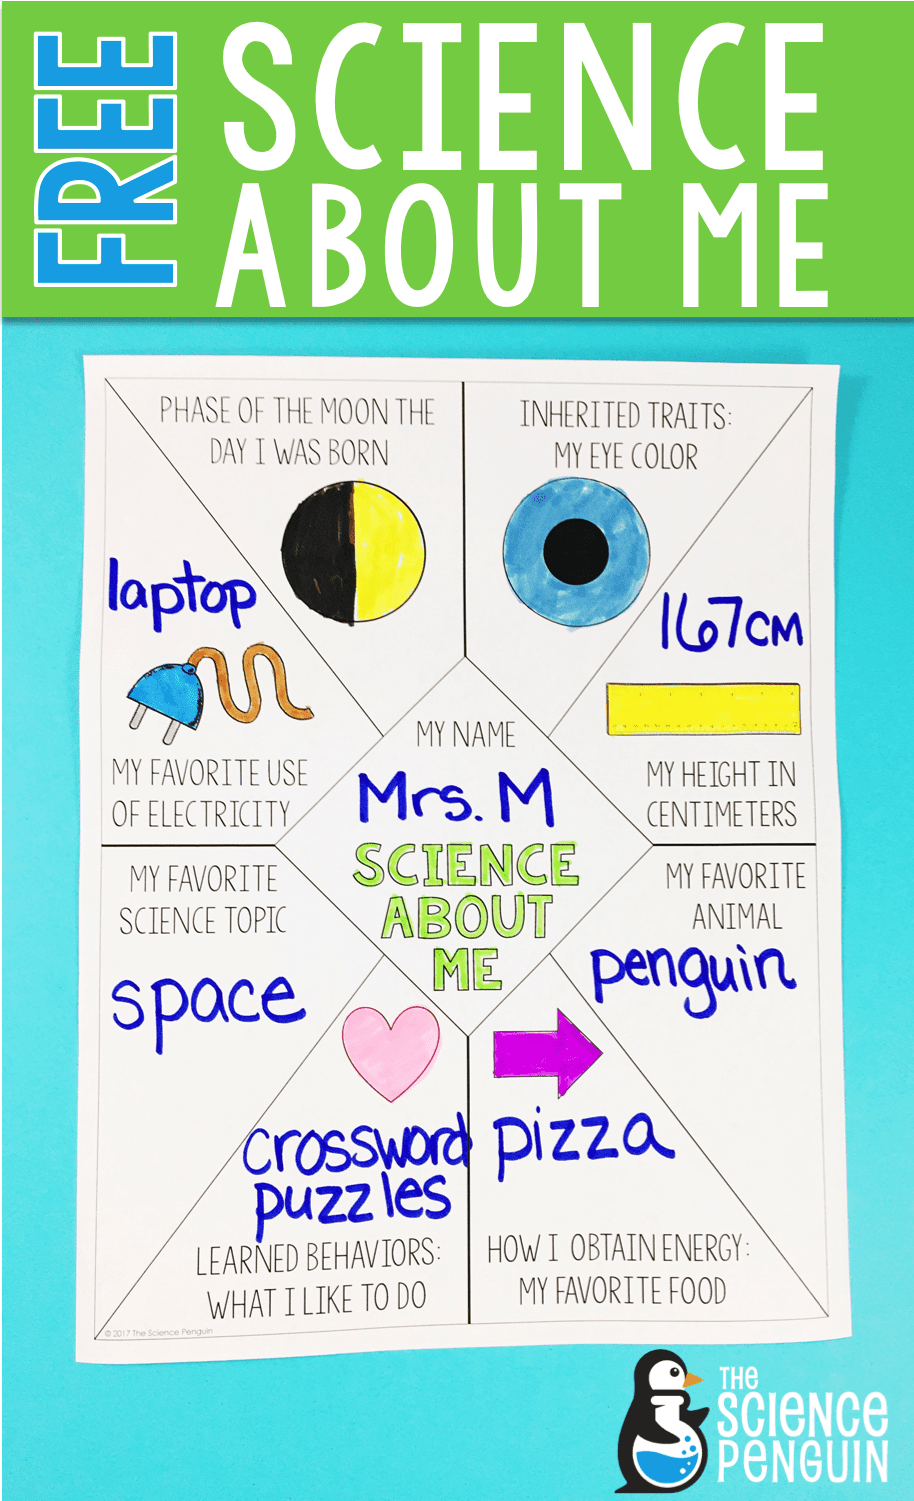 FREE
SCIENCE
ABOUT ME
PHASE OF THE MOON THE
DAY I WAS BORN
INHERITED TRAITS:
MY EYE COLOR
laptop
167cm
MY FAVORITE USE
OF ELECTRICITY
MY NAME
Mrs. M
SCIENCE
ABOUT
ME
MY HEIGHT IN
CENTIMETERS
MY FAVORITE
SCIENCE TOPIC
space
MY FAVORITE
ANIMAL
penguin
crossword
puzzles
LEARNED BEHAVIORS:
WHAT I LIKE TO DO
pizza
HOW I OBTAIN ENERGY:
MY FAVORITE FOOD
© 2017 The Science Penguin
THE
SCIENCE
PENGUIN